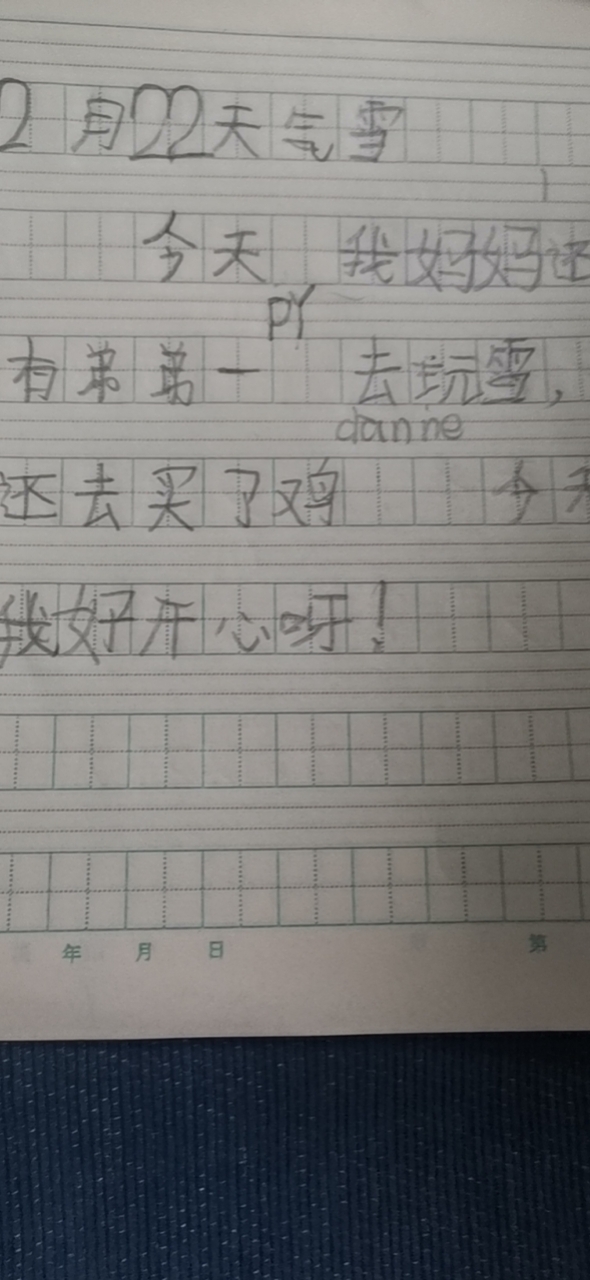 2月22天气雪
今天 我妈妈还
pY
有弟弟一 去玩雪，
danne
还去买了鸡 今天
我好开心呀！
年 月 日 第